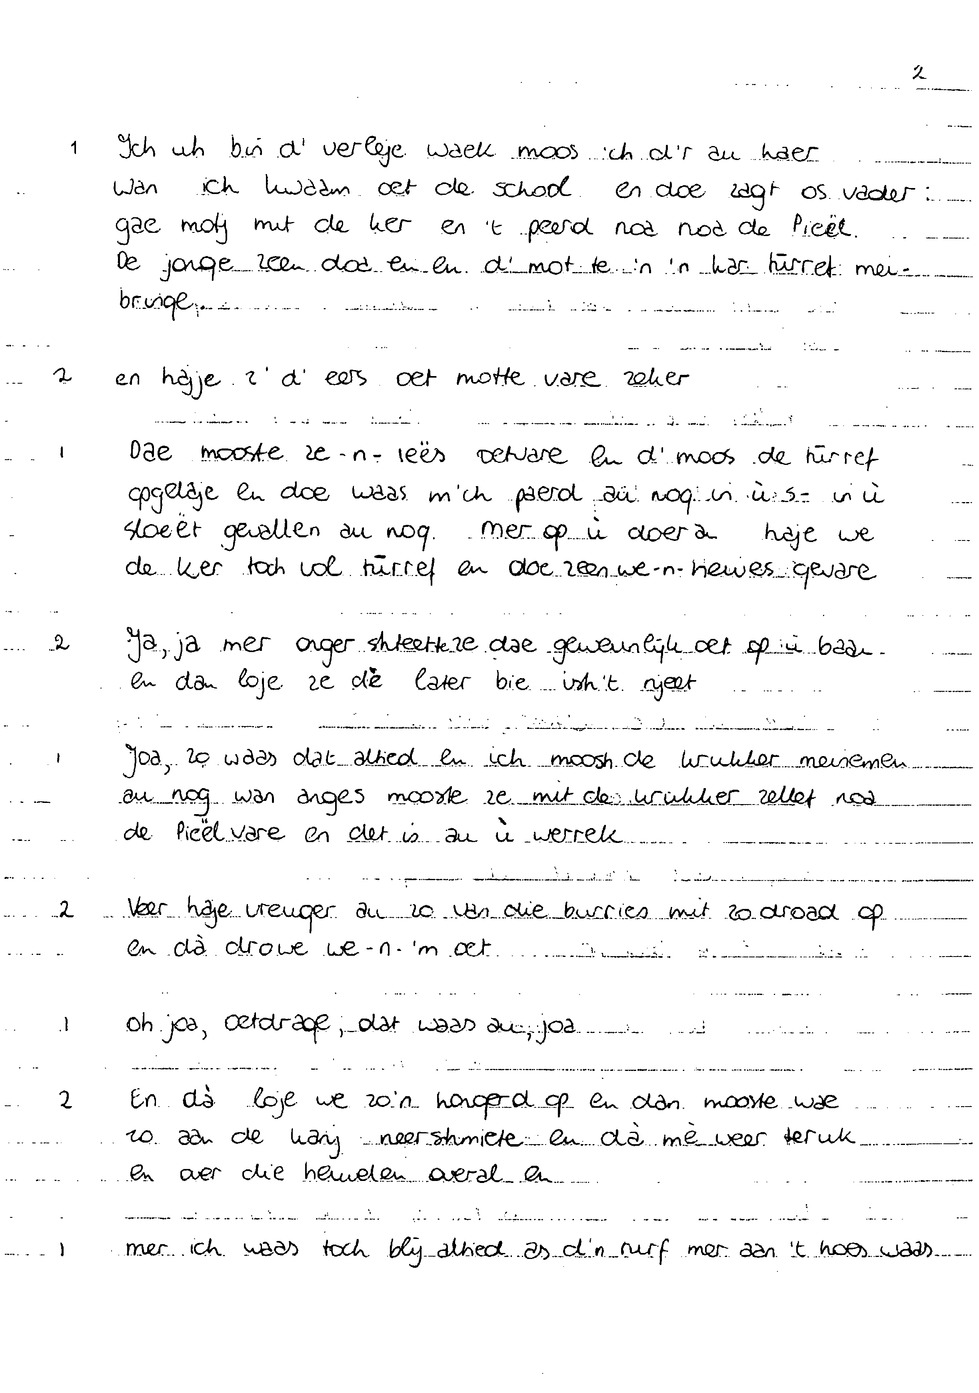 2
1 Ich uh bin d' verleje waek moos ich d'r au haer
wan ich kwaam oet de school en doe zagt os vader:
gae motj mit de ker en 't peerd noa noa de Pieël.
De jonge zeen doa en en d' mot te 'n 'n kar tūrref mei-
bringe.
2 en hàjje z' d' eers oet motte vare zeker
1 Dae mooste ze-n- ieës oetvare en d' moos de tūrref
opgelàje en doe waas m'ch paerd au nog in ù s- in ù
sloeët gevallen au nog. mer op ù doer a haje we
de ker toch vol tūrref en doe zeen we-n- hewes gevare
2 Ja, ja mer onger shteette ze dae geweunlijk oet op ù baan
en dan loje ze dè later bie ish't njeet
1 Joa, zo waas dat altied en ich moosh de krukker meinemen
au nog wan anges mooste ze mit de krukker zellef noa
de Pieël vare en det is au ù werrek
2 Veer haje vreuger au zo van die burries mit zo droad op
en dà drowe we-n-'m oet
1 oh joa, oetdrage, dat waas au, joa
2 En dà loje we zo'n hongerd op en dan mooste wae
zo aan de kanj neershmiete en dà mè weer teruk
en over die heuvelen overal en
1 mer ich waas toch blij altied as d'n turf mer aan 't hoes waas